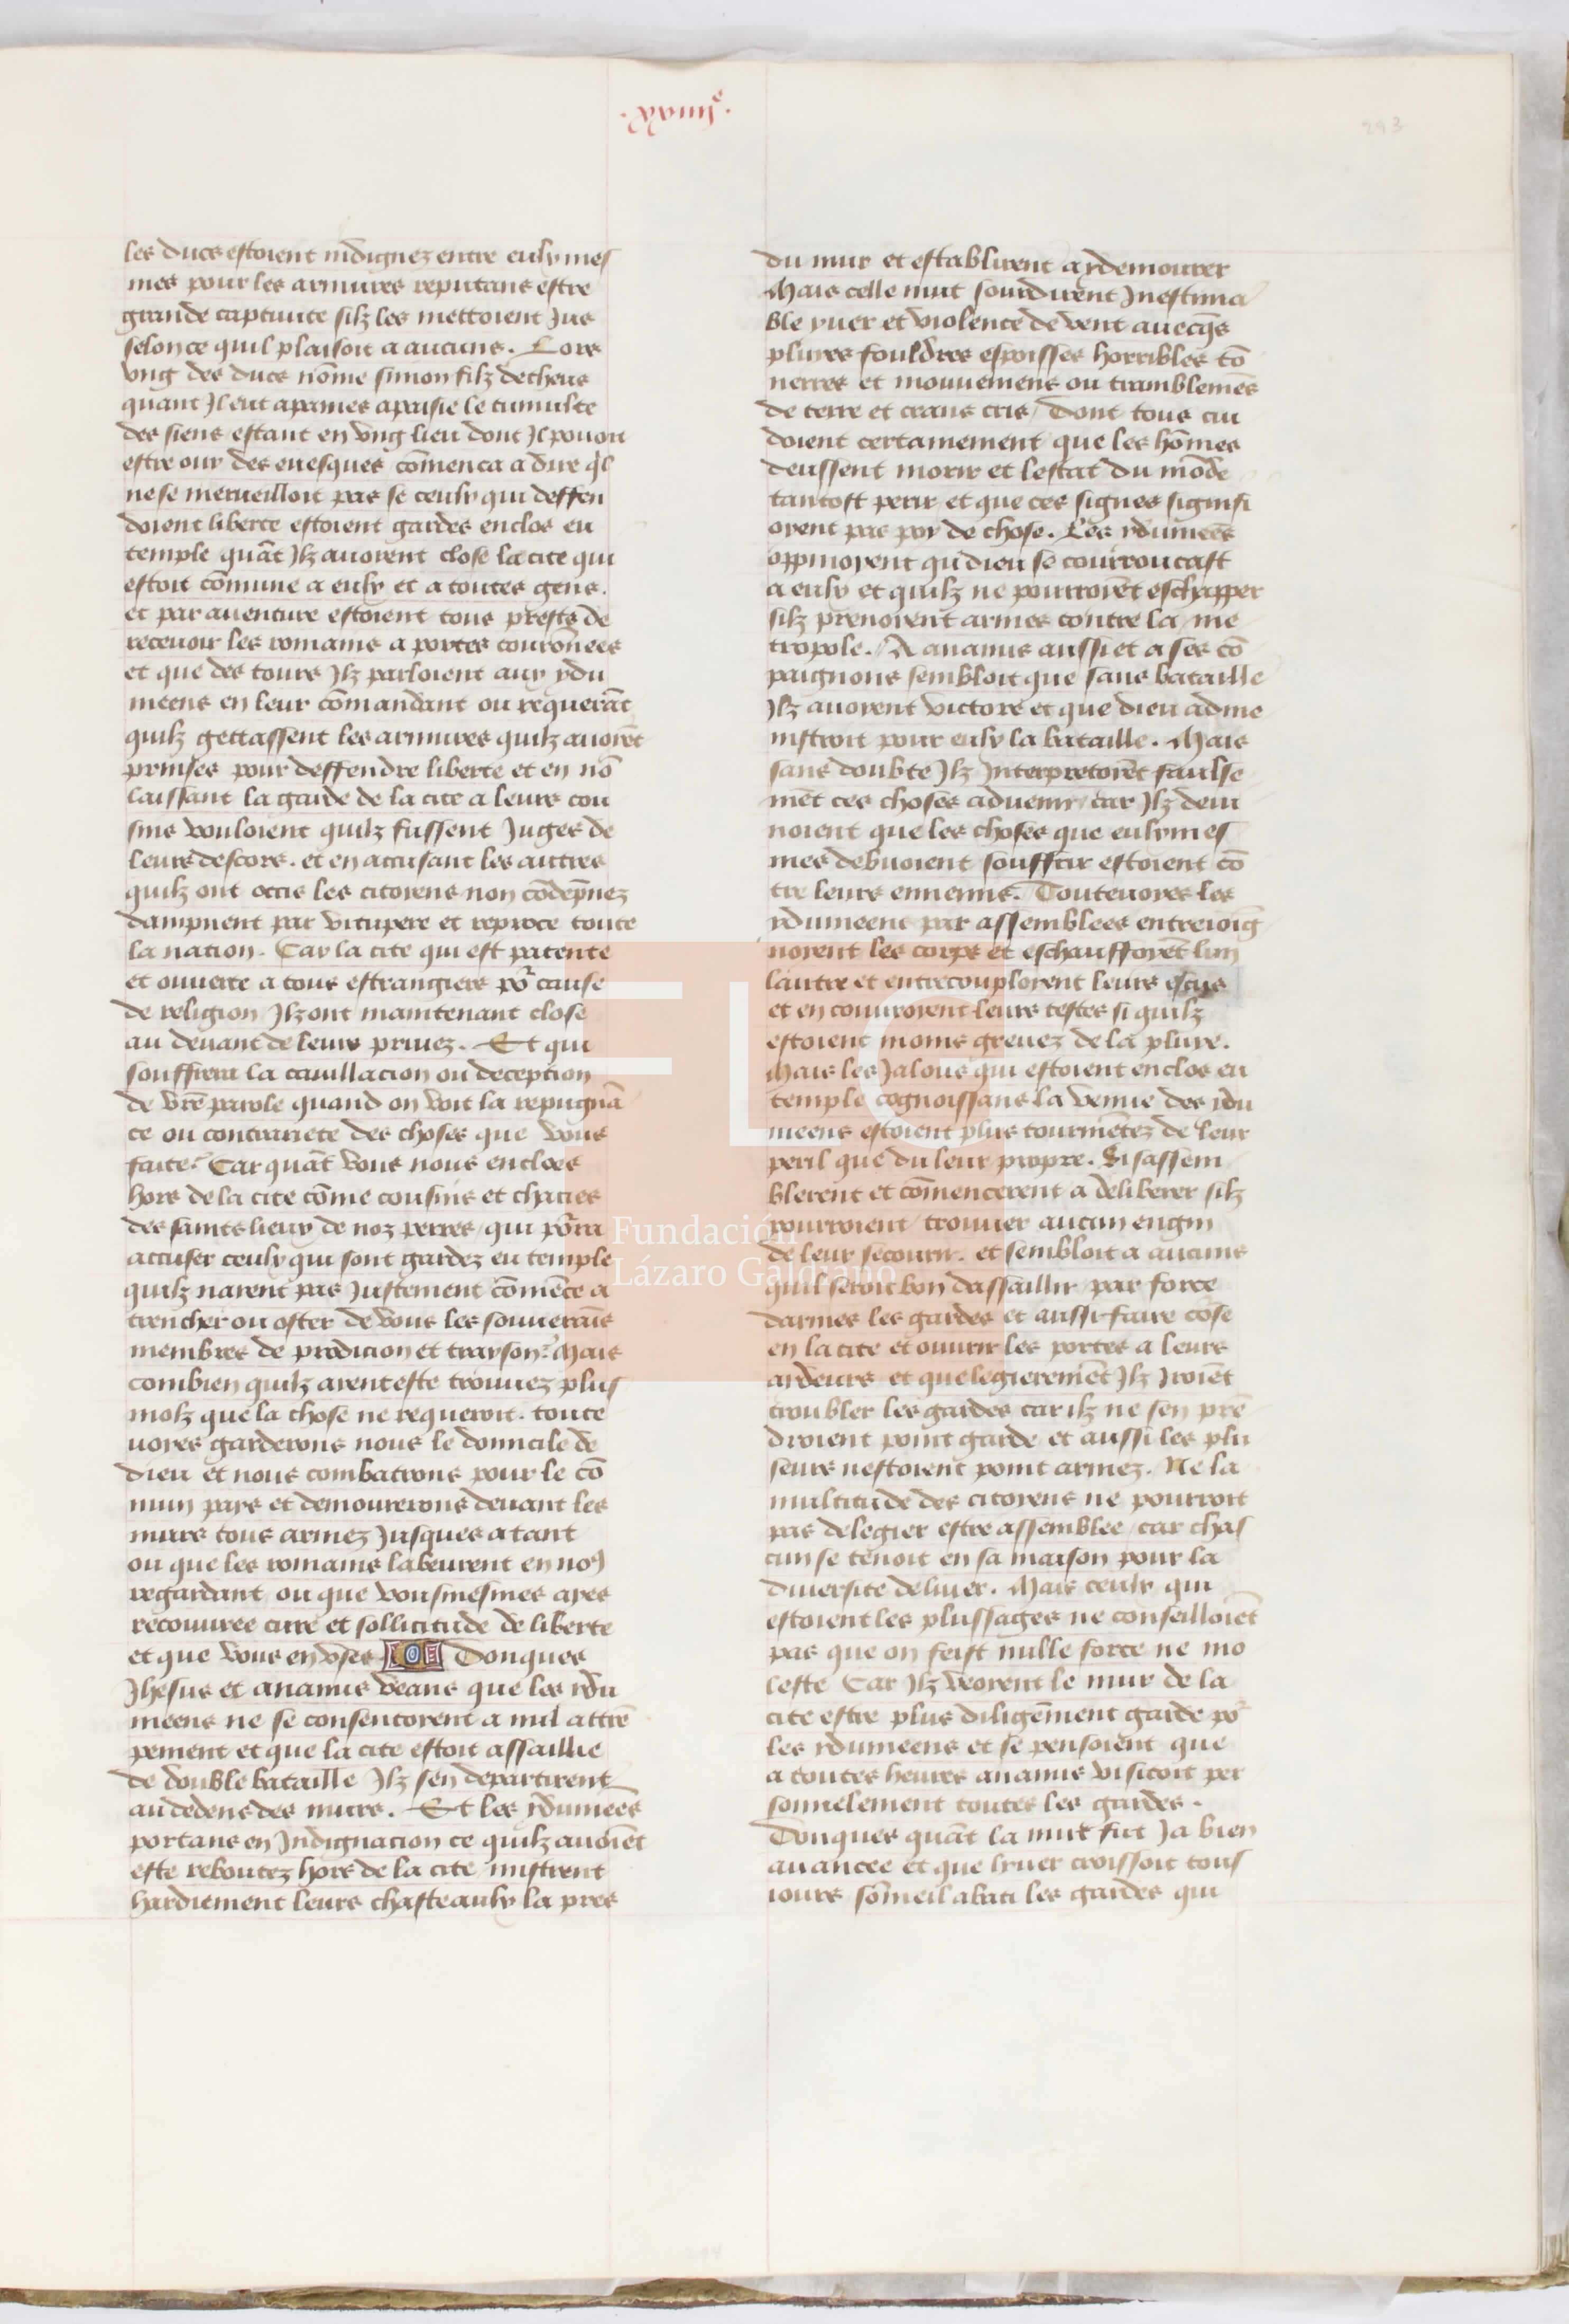 ·xxviiiᵉ·
293
les ducs estoient indignez entre eulx mes
mes pour les armures reputans estre
grande captiuite silz les mettoient Jus
selon ce quil plaisoit a aucuns. Lors
vng des ducs nōme simon filz decheus
quant Jl eut apaines apaisie le tumulte
des siens estant en vng lieu dont Jl pouoit
estre ouy des euesques cōmenca a dire ql
ne se merueilloit pas se ceulx qui deffen
doient liberte estoient gardes enclos eu
temple quāt Jlz auoient close la cite qui
estoit cōmune a eulx et a toutes gens.
et par auenture estoient tous prests de
receuoir les romains a portes couronnees
et que des tours Jlz parloient aux ydu
meens en leur cōmandant ou requerāt
quilz gettassent les armures quilz auoiēt
prinses pour deffendre liberte et en nō
laissant la garde de la cite a leurs cou
sins vouloient quilz fussent Juges de
leurs descors. et en accusant les autres
quilz ont occis les citoiens non cōdēpnez
dampnent par vitupere et reproce toute
la nation. Car la cite qui est patente
et ouuerte a tous estrangiers po᷑ cause
de religion Jlz ont maintenant close
au deuant de leurs priuez. Et qui
souffrera la cauillacion ou deception
de vrē parole quand on voit la repugnā
ce ou contrariete des choses que vous
faite? Car quāt vous nous encloes
hors de la cite cōme cousins et chacies
des saints lieux de noz perres qui po᷑ra
accuser ceulx qui sont gardez eu temple
quilz naient pas Justement cōmēce a
trencher ou oster de vous les souuerāīs
membres de prodicion et trayson? Mais
combien quilz aient este trouuez plus
molz que la chose ne requeroit. toute
uoies garderons nous le domicile de
dieu et nous combatrons pour le cō
mun pays et demourerons deuant les
murs tous armez Jusques a tant
ou que les romains labeurent en no9
regardant ou que vousmesmes ayes
recouuree cure et sollicitude de liberte
et que vous en vses. Donques
Jhesus et ananus veans que les ydu
meens ne se consentoient a nul attrē
pement et que la cite estoit assaillie
de double bataille Jlz sen departirent
au dedens des murs. Et les ydumeēs
portans en Indignacion ce quilz auoiēt
este reboutez hors de la cite mistrent
hardiement leurs chasteaulx la pres
du mur et establirent a ydemourer
Mais celle nuit sourdirent Jnestima
ble yuer et violence de vent auecq̄s
pluies fouldres espoisses horribles tō
nerres et mouuemens ou tramblemēs
de terre et crans cris / Dont tous cui
doient certainement que les hōmes
deussent morir et lestat du mōde
tantost perir et que ces signes signifi
oyent pas poy de chose. Les ydumeēs
oppinoyent qu dieu se courroucast
a eulx et quilz ne pourroiēt eschapper
silz prenoient armes contre la me
tropole. / A ananus aussi et a ses cō
paignons sembloit que sans bataille
Jlz auoient victore et que dieu admi
nistroit pour eulx la bataille. Mais
sans doubte Jlz Jnterpretoiēt faulse
mēt ces choses aduenir car Jlz deui
noient que les choses que eulxmes
mes debuoient souffrir estoient cō
tre leurs ennemis. Touteuoies les
ydumeens par assemblees entreioīg
noient les corps et eschauffoyēt lun
lautre et entrecouploient leurs escus
et en couuroient leurs testes si quilz
estoient moins greuez de la pluye.
Mais les Jalous qui estoient enclos eu
temple cognoissans la venue des ydu
meens estoient plus tourmētez de leur
peril que du leur propre. Si sassem
blerent et cōmencerent a deliberer silz
pourroient / trouuer aucun engin
de leur secourir. et sembloit a aucuns
quil seroit bon dassaillir par force
darmes les gardes et aussi faire cose
en la cite et ouurir les portes a leurs
aideurs et que legieremēt Jlz Jroiēt
troubler les gardes car ilz ne sen prē
droient point garde et aussi les plu
seurs nestoient point armez. Ne la
multitude des citoiens ne pourroit
pas delegier estre assemblee / car chas
cun se tenoit en sa maison pour la
diuersite deliuer. Mais ceulx qui
estoient les plussages ne conseilloiēt
pas que on feist nulle force ne mo
leste Car Jlz veoient le mur de la
cite estre plus diligēment garde po᷑
les ydumeens et se pensoient que
a toutes heures ananus visitoit per
sonnelement toutes les gardes.
Donques quāt la nuit fut Ja bien
auancee et que lyuer croissoit tous
iours sōmeil abati les gardes qui
Fundación
Lázaro Galdiano
FLG